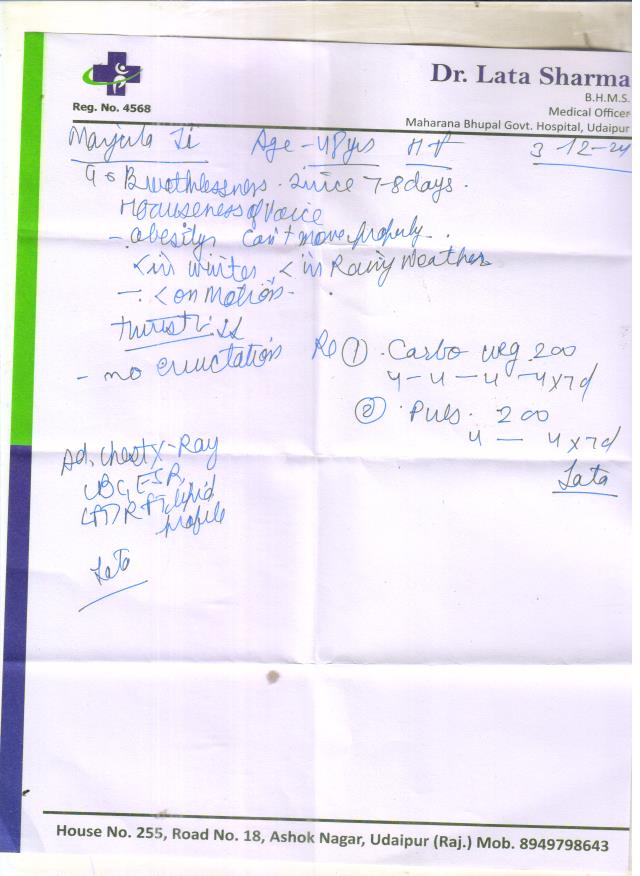 Dr. Lata Sharma
B.H.M.S.
Medical Officer
Maharana Bhupal Govt. Hospital, Udaipur
Reg. No. 4568
Manjula Ji Age - 48 yrs 3 12-24
Breathlessness. Since 7-8 days.
Hoarseness of Voice
- obesity, can't move properly.
< in winter, < in Rainy Weather
- < on Motion.
- no eructation
Rx ① . Carbo veg 200
4 - 4 - 4 - 4 x 7d
② . Puls. 200
4 - 4 x 7d
Lata
Ad. Chest X-Ray
CBC, ESR,
LFT, RFT, lipid
profile
Lata
House No. 255, Road No. 18, Ashok Nagar, Udaipur (Raj.) Mob. 8949798643